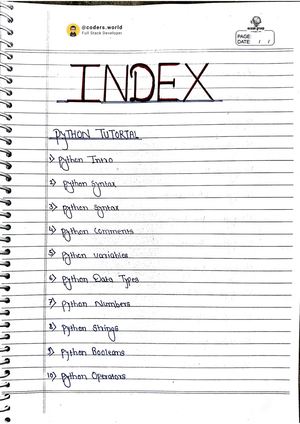 @coders.world
Full Stack Developer
PAGE
DATE / /
INDEX
PYTHON TUTORIAL
1) Python Intro
2) Python Syntax
3) Python Syntax
4) Python Comments
5) Python Variables
6) Python Data Types
7) Python Numbers
8) Python Strings
9) Python Booleans
10) Python Operators